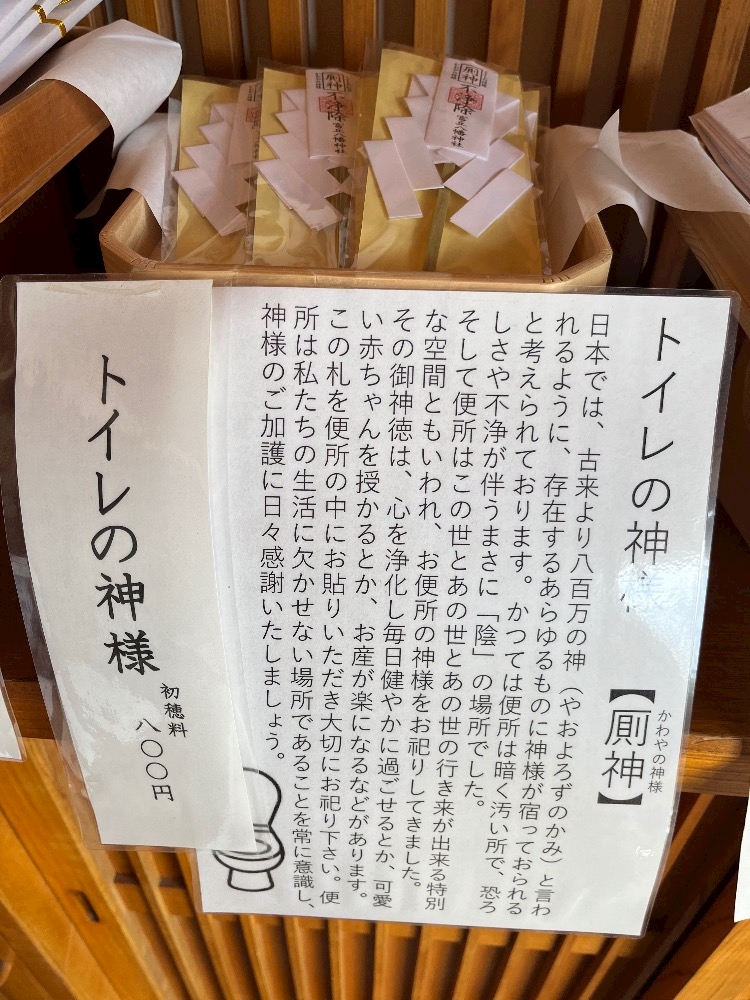 厠神
不浄除
宮立八幡神社
厠神
不浄除
トイレの神様
【厠神】
かわやの神様
日本では、古来より八百万の神（やおよろずのかみ）と言わ
れるように、存在するあらゆるものに神様が宿っておられる
と考えられております。かつては便所は暗く汚い所で、恐ろ
しさや不浄が伴うまさに「陰」の場所でした。
そして便所はこの世とあの世とあの世の行き来が出来る特別
な空間ともいわれ、お便所の神様をお祀りしてきました。
その御神徳は、心を浄化し毎日健やかに過ごせるとか、可愛
い赤ちゃんを授かるとか、お産が楽になるなどがあります。
この札を便所の中にお貼りいただき大切にお祀り下さい。便
所は私たちの生活に欠かせない場所であることを常に意識し、
神様のご加護に日々感謝いたしましょう。
トイレの神様
初穂料
八〇〇円